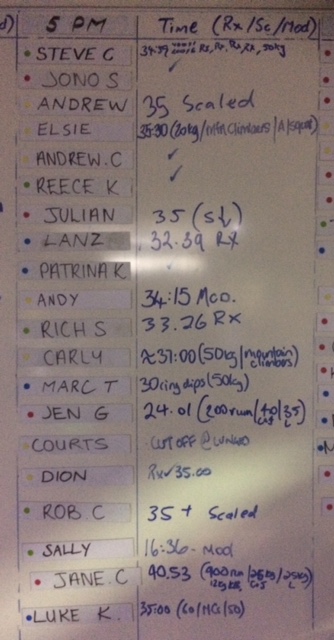 d) 5 PM Time (Rx/Sc/Mod)
STEVE C 34:59 Rx, Rx, Rx, Rx, 50kg
JONO S ✓
ANDREW 35 Scaled
ELSIE 35:30 (20kg/mtn Climbers/A/squat)
ANDREW.C ✓
REECE K ✓
JULIAN 35 (SL)
LANZ 32.39 RX
PATRINA K
ANDY 34:15 MOD.
RICH S 33.26 RX
CARLY ≈37:00 (50kg/mountain climbers)
MARC T 30 ring dips (50kg)
JEN G 24.01 (200 run/40/35)
COURTS CUT OFF @
DION Rx✓35.00
ROB.C 35+ Scaled
SALLY 16:36 - Mod
JANE.C 40.53 (900 run/25kg/25kg)
LUKE K. 35:00 (60/MC/50)